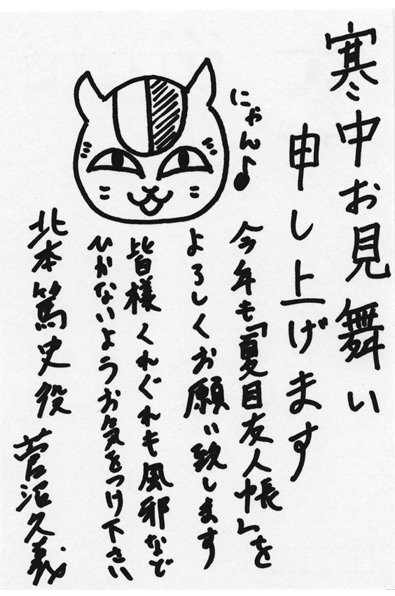 寒中お見舞い
申し上げます
にゃん♪
今年も「夏目友人帳」を
よろしくお願い致します
皆様くれぐれも風邪など
ひかないようお気をつけ下さい
北本篤史役 菅沼久義